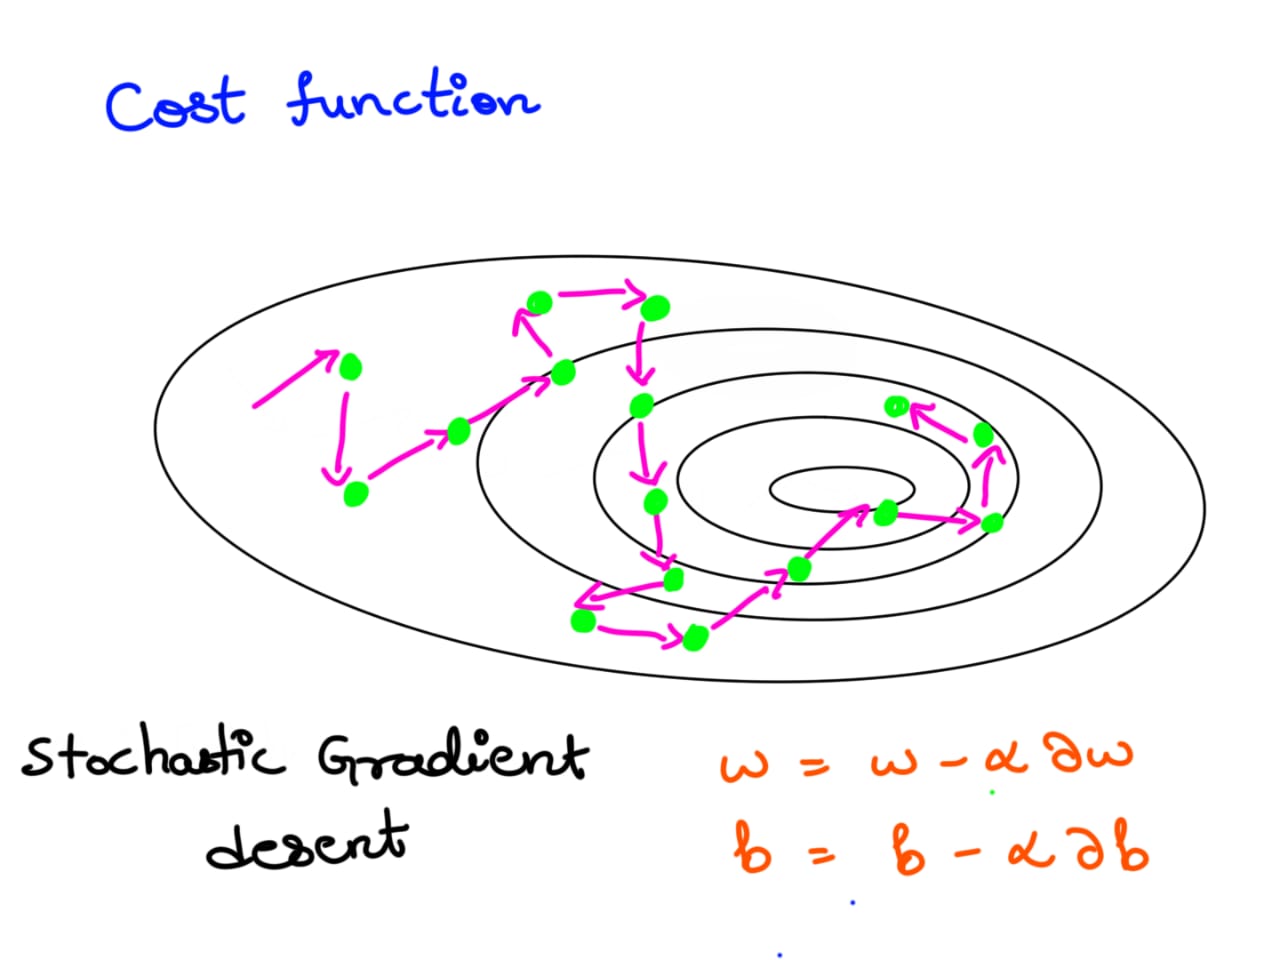 Cost function
Stochastic Gradient
desent
w = w - α ∂w
b = b - α ∂b